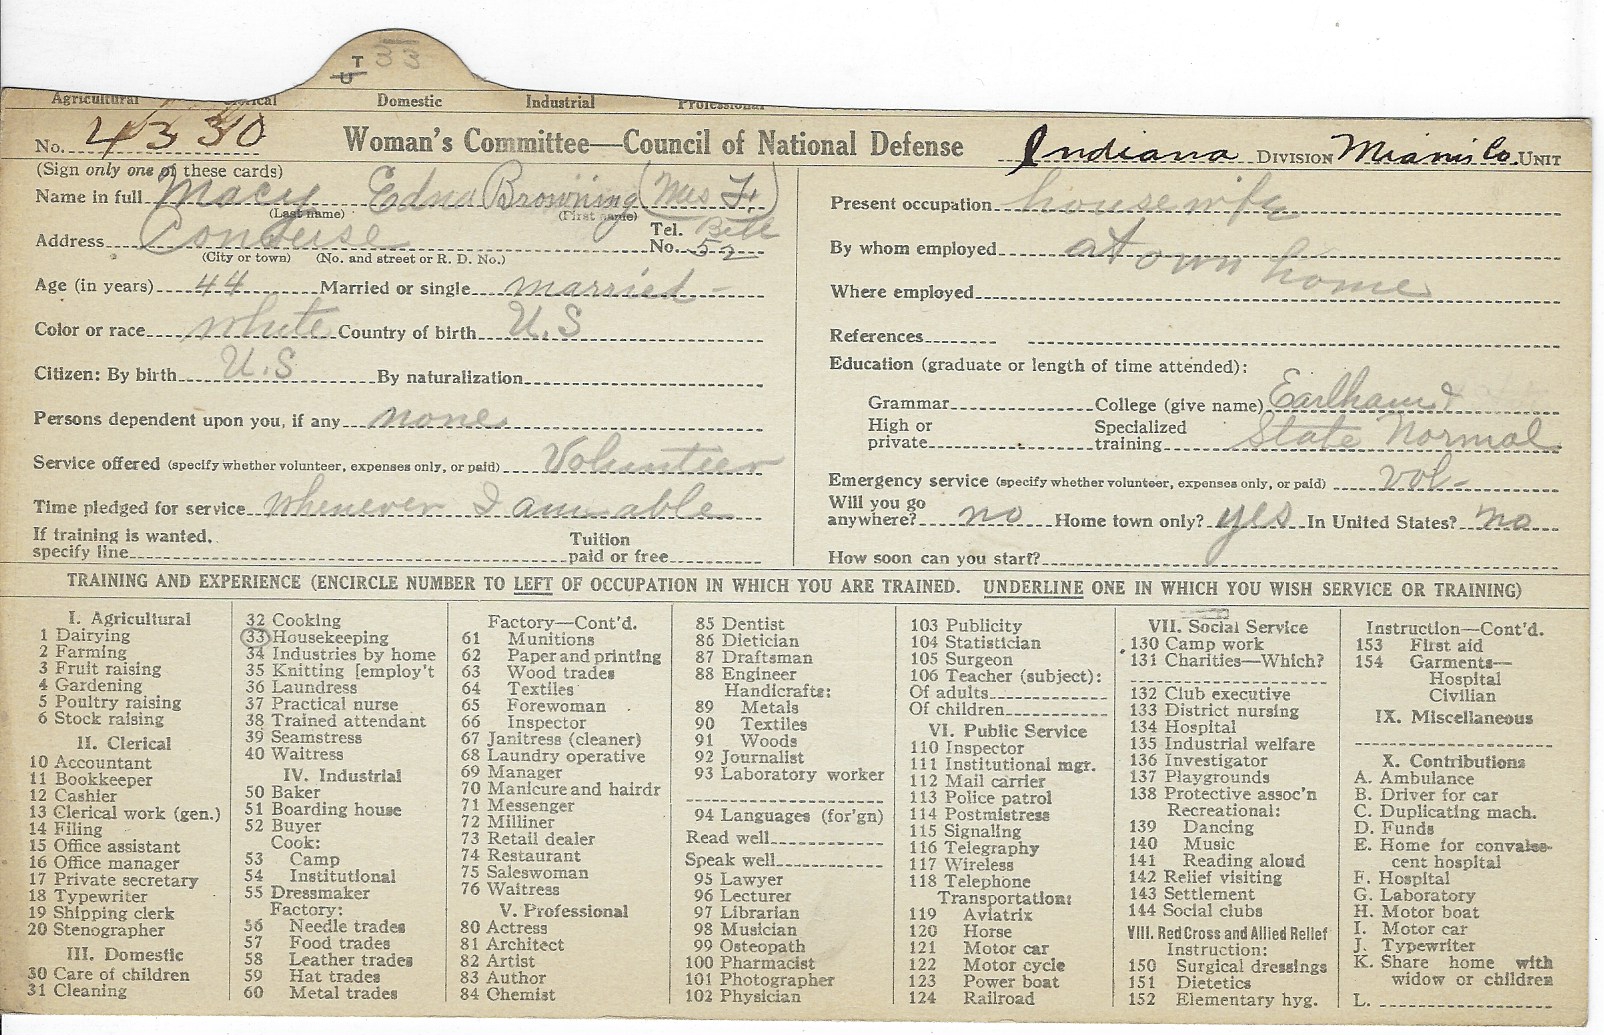 T 33
U
Agricultural Clerical Domestic Industrial Professional
No. 4330 Woman's Committee—Council of National Defense Indiana DIVISION Miami Co. UNIT
(Sign only one of these cards)
Name in full Macy Edna Browning (Mrs F.)
(Last name) (First name)
Address Converse Tel. No. Bell 52
(City or town) (No. and street or R. D. No.)
Age (in years) 44 Married or single married -
Color or race white Country of birth U.S
Citizen: By birth U.S By naturalization
Persons dependent upon you, if any none
Service offered (specify whether volunteer, expenses only, or paid) Volunteer
Time pledged for service whenever I am able
If training is wanted, specify line Tuition paid or free
Present occupation housewife
By whom employed at own home
Where employed
References
Education (graduate or length of time attended):
Grammar College (give name) Earlham &
High or private Specialized training State Normal
Emergency service (specify whether volunteer, expenses only, or paid) vol-
Will you go anywhere? no Home town only? yes In United States? no
How soon can you start?
TRAINING AND EXPERIENCE (ENCIRCLE NUMBER TO LEFT OF OCCUPATION IN WHICH YOU ARE TRAINED. UNDERLINE ONE IN WHICH YOU WISH SERVICE OR TRAINING)
I. Agricultural
1 Dairying
2 Farming
3 Fruit raising
4 Gardening
5 Poultry raising
6 Stock raising
II. Clerical
10 Accountant
11 Bookkeeper
12 Cashier
13 Clerical work (gen.)
14 Filing
15 Office assistant
16 Office manager
17 Private secretary
18 Typewriter
19 Shipping clerk
20 Stenographer
III. Domestic
30 Care of children
31 Cleaning
32 Cooking
33 Housekeeping
34 Industries by home
35 Knitting [employ't
36 Laundress
37 Practical nurse
38 Trained attendant
39 Seamstress
40 Waitress
IV. Industrial
50 Baker
51 Boarding house
52 Buyer
Cook:
53 Camp
54 Institutional
55 Dressmaker
Factory:
56 Needle trades
57 Food trades
58 Leather trades
59 Hat trades
60 Metal trades
Factory—Cont'd.
61 Munitions
62 Paper and printing
63 Wood trades
64 Textiles
65 Forewoman
66 Inspector
67 Janitress (cleaner)
68 Laundry operative
69 Manager
70 Manicure and hairdr
71 Messenger
72 Milliner
73 Retail dealer
74 Restaurant
75 Saleswoman
76 Waitress
V. Professional
80 Actress
81 Architect
82 Artist
83 Author
84 Chemist
85 Dentist
86 Dietician
87 Draftsman
88 Engineer
Handicrafts:
89 Metals
90 Textiles
91 Woods
92 Journalist
93 Laboratory worker
94 Languages (for'gn)
Read well
Speak well
95 Lawyer
96 Lecturer
97 Librarian
98 Musician
99 Osteopath
100 Pharmacist
101 Photographer
102 Physician
103 Publicity
104 Statistician
105 Surgeon
106 Teacher (subject):
Of adults
Of children
VI. Public Service
110 Inspector
111 Institutional mgr.
112 Mail carrier
113 Police patrol
114 Postmistress
115 Signaling
116 Telegraphy
117 Wireless
118 Telephone
Transportation:
119 Aviatrix
120 Horse
121 Motor car
122 Motor cycle
123 Power boat
124 Railroad
VII. Social Service
130 Camp work
131 Charities—Which?
132 Club executive
133 District nursing
134 Hospital
135 Industrial welfare
136 Investigator
137 Playgrounds
138 Protective assoc'n
Recreational:
139 Dancing
140 Music
141 Reading aloud
142 Relief visiting
143 Settlement
144 Social clubs
VIII. Red Cross and Allied Relief
Instruction:
150 Surgical dressings
151 Dietetics
152 Elementary hyg.
Instruction—Cont'd.
153 First aid
154 Garments—
Hospital
Civilian
IX. Miscellaneous
X. Contributions
A. Ambulance
B. Driver for car
C. Duplicating mach.
D. Funds
E. Home for convales-
cent hospital
F. Hospital
G. Laboratory
H. Motor boat
I. Motor car
J. Typewriter
K. Share home with
widow or children
L.